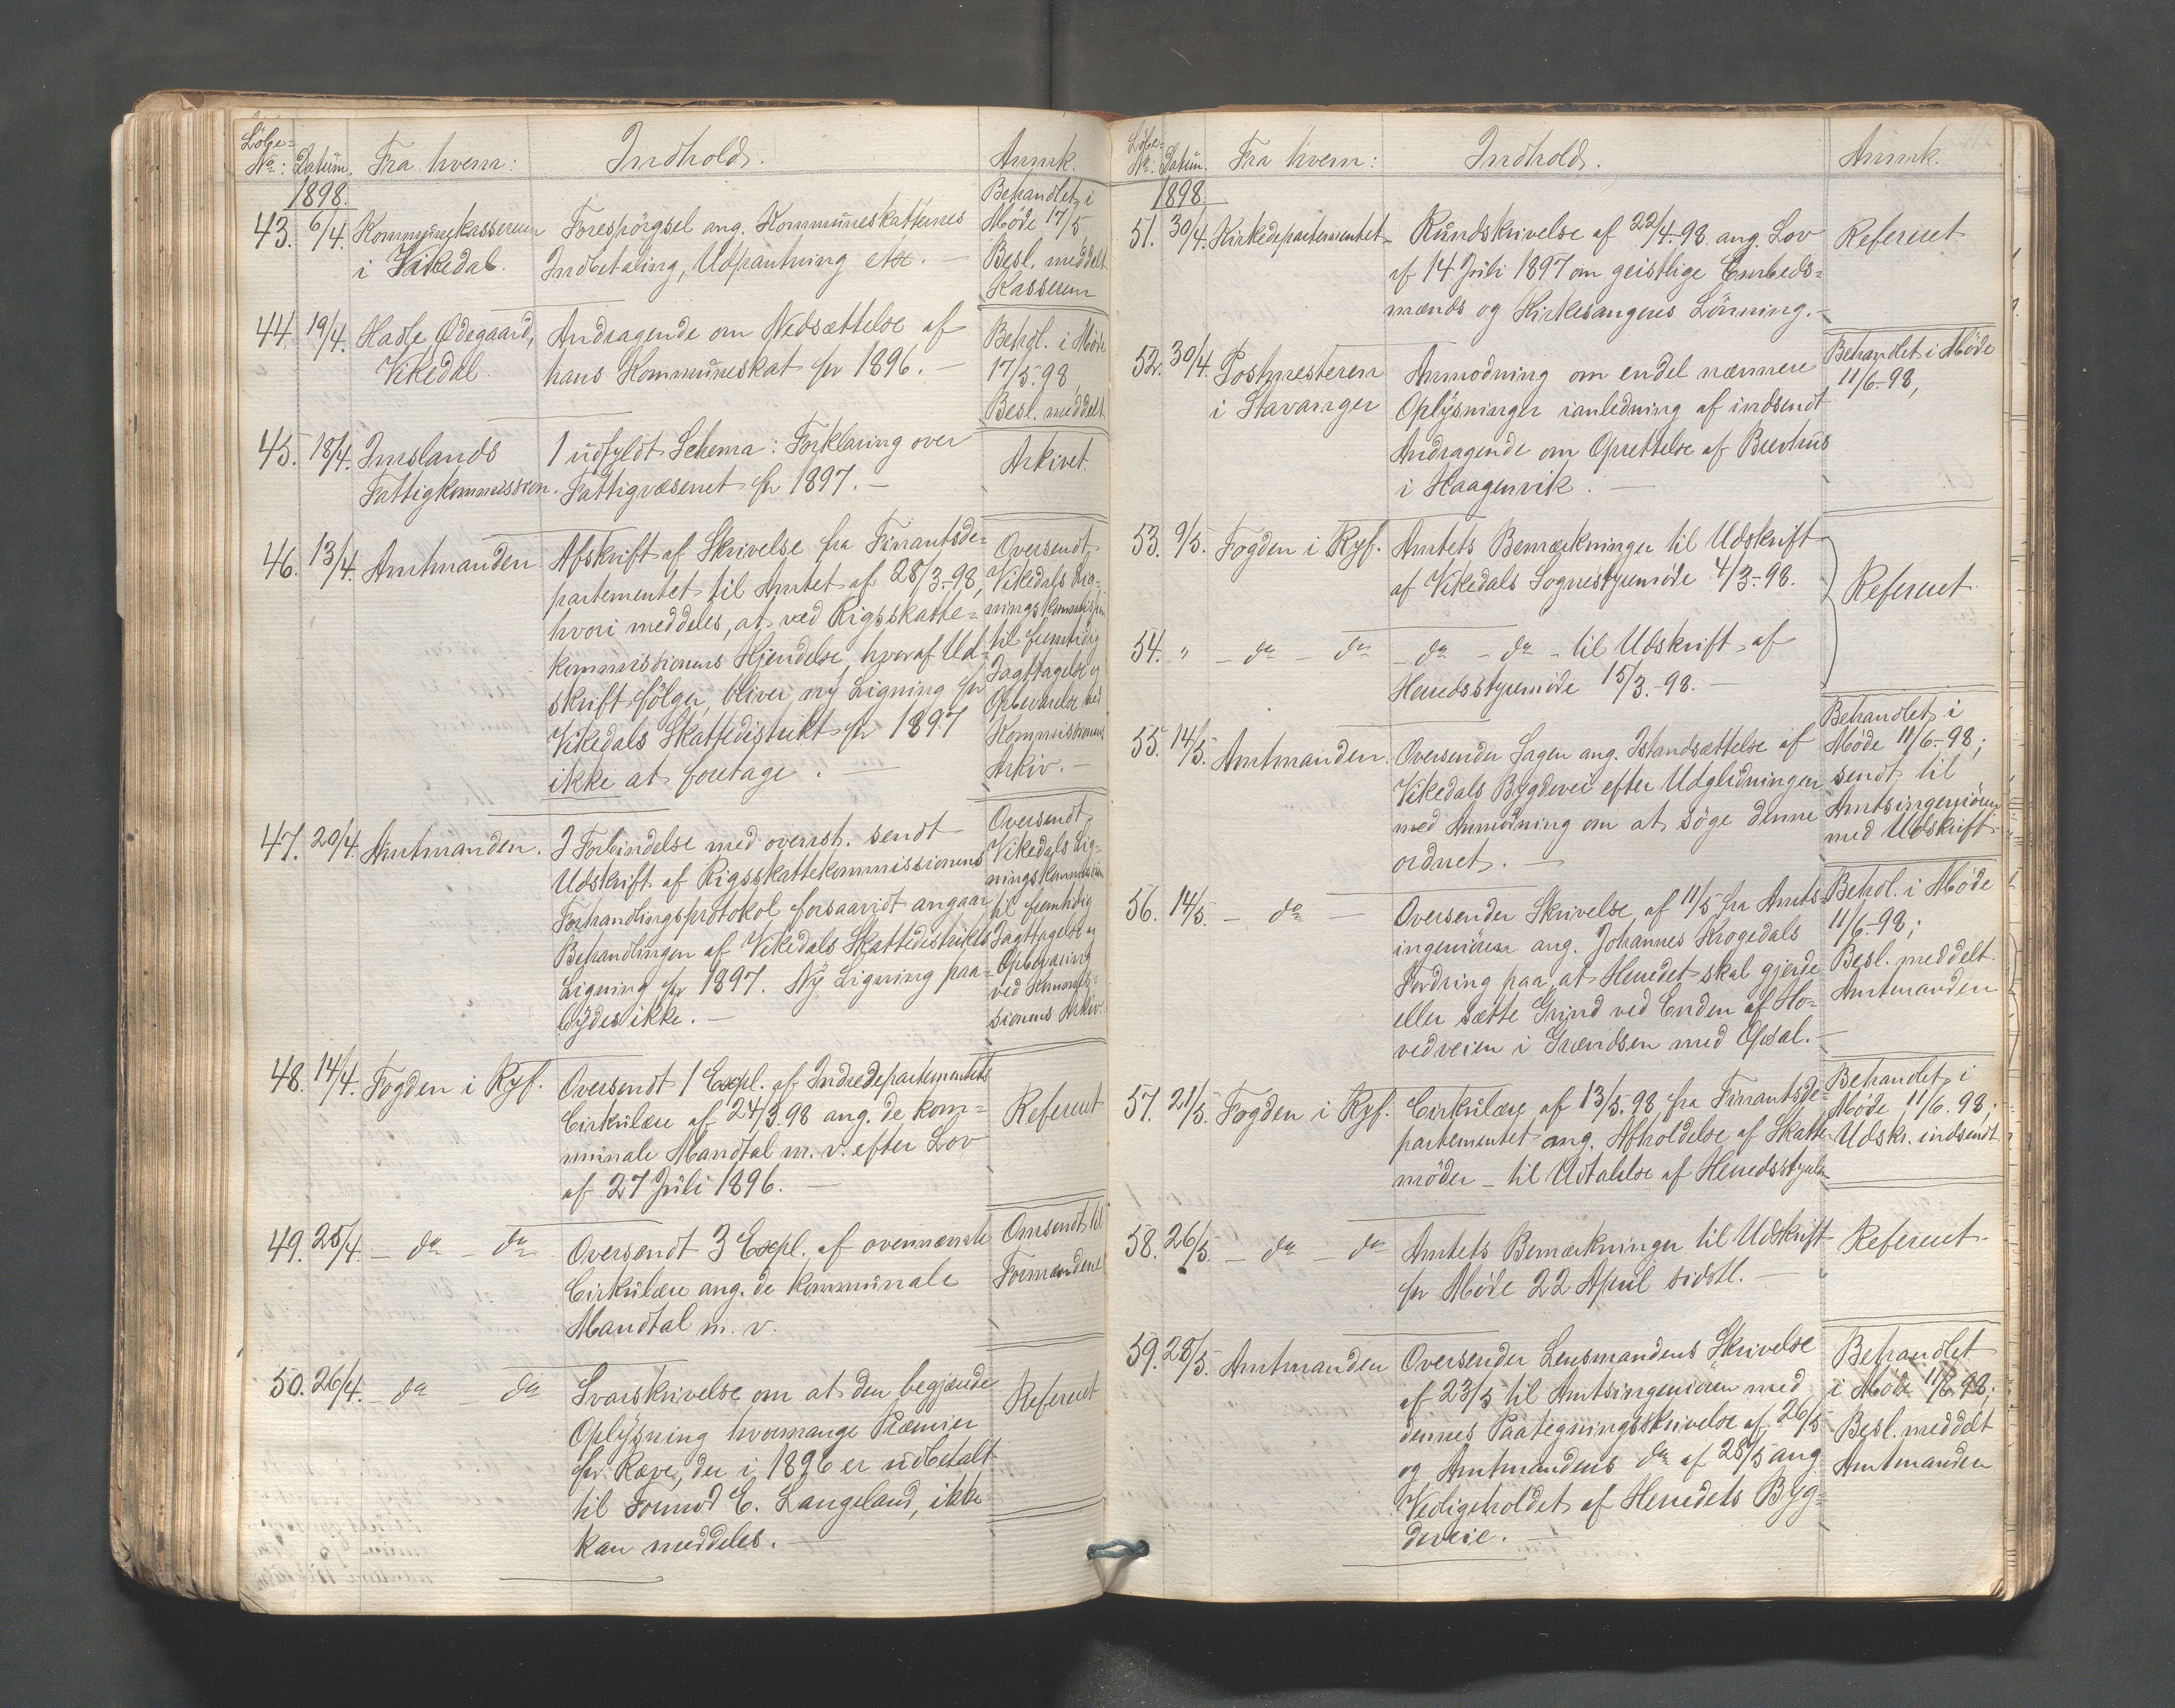 Löbe-
No: Datum. Fra hvem: Indhold. Anmk.
1898.
43. 6/4. Kommunekassereren Forespörgsel ang. Kommuneskatternes Behandlet i Möde 17/5
i Vikedal. Indbetaling, Udpantning etc. — Besl. meddelt
Kasseren
44. 19/4. Hadle Ødegaard, Andragende om Nedsættelse af Behdl. i Möde
Vikedal. hans Kommuneskat for 1896. — 17/5.98,
Besl. meddelt
45. 18/4. Imslands 1 udfyldt Schema: Forklaring over Arkivet.
Fattigkommission. Fattigvæsenet for 1897. —
46. 13/4. Amtmanden Afskrift af Skrivelse fra Finantsde- Oversendt
partementet til Amtet af 28/3.-98, Vikedals Lig-
hvori meddeles, at ved Rigsskatte- ningskommission
kommissionens Kjendelse, hvoraf Ud- til fremtidig
skrift fölger, bliver ny Ligning for Iagttagelse og
Vikedals Skattedistrikt for 1897 Opbevarelse ved
ikke at foretage. — Kommissionens
Arkiv. —
47. 20/4. Amtmanden. I Forbindelse med ovenst. sendt Oversendt
Udskrift af Rigsskattekommissionens Vikedals Lig-
Forhandlingsprotokol forsaavidt angaar ningskommission
Behandlingen af Vikedals Skattedistrikts til fremtidig
Ligning for 1897. Ny Ligning paa- Iagttagelse og
bydes ikke. — Opbevaring
ved Kommis-
sionens Arkiv.
48. 14/4. Fogden i Ryf. Oversendt 1 Expl. af Indredepartementets Referert
Cirkulære af 24/3.98 ang. de kom-
munale Mandtal m. v. efter Lov
af 27 Juli 1896. —
49. 25/4. — do — do Oversendt 3 Expl. af ovennævnte Omsendt til
Cirkulære ang. de kommunale Formændene
Mandtal m. v.
50. 26/4. — do — do Svarskrivelse om at den begjærede Referert
Oplysning hvormange Præmier
for Ræve, der i 1896 er udbetalt
til Formd E. Langeland, ikke
kan meddeles. —
Löbe-
No: Datum. Fra hvem: Indhold. Anmk.
1898.
51. 30/4. Kirkedepartementet. Rundskrivelse af 22/4.-98. ang. Lov Referert
af 14 Juli 1897 om geistlige Embeds-
mænds og Kirkesangeres Lönning. —
52. 30/4. Postmesteren Anmodning om endel nærmere Behandlet i Möde
i Stavanger Oplysninger ianledning af indsendt 11/6.-98,
Andragende om Oprettelse af Brevhus
i Haagenvik. —
53. 9/5. Fogden i Ryf. Amtets Bemærkninger til Udskrift
af Vikedals Sognestyremöde 4/3.-98. Referert
54. " — do — do — do — do — til Udskrift af
Herredsstyremöde 15/3.-98. —
55. 14/5. Amtmanden. Oversender Sagen ang. Istandsættelse af Behandlet i Möde 11/6.-98;
Vikedals Bygdevei efter Udglidningen sendt til
med Anmodning om at söge denne Amtsingeniören
ordnet. — med Udskrift
56. 14/5. — do — Oversender Skrivelse af 11/5 fra Amts- Behdl. i Möde
ingeniören ang. Johannes Krogedals 11/6.-98;
Fordring paa, at Herredet skal gjerde Besl. meddelt
eller sætte Grind ved Enden af Ho- Amtmanden
vedveien i Grændsen med Opsal. —
57. 21/5. Fogden i Ryf. Cirkulære af 13/5.-98, fra Finantsde- Behandlet i
partementet ang. Afholdelse af Skatte- Möde 11/6.98;
möder — til Udtalelse af Herredsstyrelsen Udskr. indsendt
58. 26/5. — do — do Amtets Bemærkninger til Udskrift Referert
for Möde 22 April sidstl. —
59. 28/5. Amtmanden Oversender Lensmandens Skrivelse Behandlet
af 23/5 til Amtsingeniören med i Möde 11/6.98;
dennes Paategningsskrivelse af 26/5 Besl. meddelt
og Amtmandens do af 28/5 ang. Amtmanden
Vedligeholdet af Herredets Byg-
deveie. —